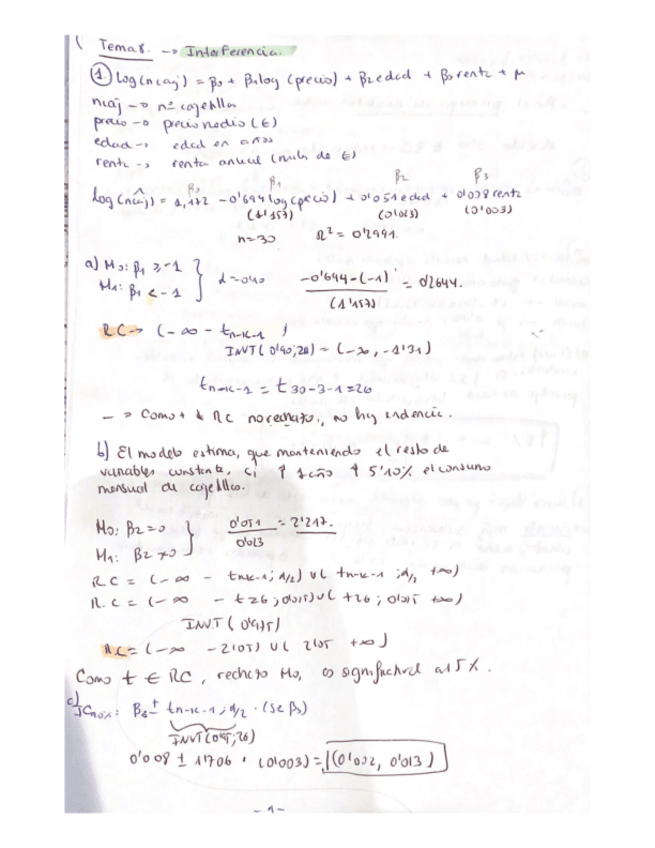 Tema 8. -> Interferencia.
① Log(ncaj) = β0 + β1 log (precio) + β2 edad + β3 renta + μ
ncaj -> nº cajetilla
precio -> precio medio (€)
edad -> edad en años
renta -> renta anual (mils de €)
β0 β1 β2 β3
log(ncaj) = 1,172 - 0'644 log (precio) + 0'051 edad + 0'008 renta
(1'157) (0'023) (0'003)
n=30 R² = 0'2991.
a) H0: β1 ≥ -1
H1: β1 < -1 } α = 0'10 -0'644-(-1) / (1'157) = 0'2644.
RC -> (-∞ - tn-k-1)
INVT( 0'90; 26) = (-∞, -1'31)
tn-k-1 = t 30-3-1 = 26
-> Como t ∉ RC no rechazo, no hay evidencia.
b) El modelo estima, que manteniendo el resto de
variables constante, si ↑ 1 año ↑ 5'10% el consumo
mensual de cajetillas.
H0: β2 = 0
H1: β2 ≠ 0 } 0'051 / 0'023 = 2'217.
RC = (-∞ - tn-k-1; α/2) U( tn-k-1 ; α/2 +∞)
R.C = (-∞ - t26 ; 0'025) U( t26 ; 0'025 +∞)
INVT ( 0'975)
RC = (-∞ -2'05) U( 2'05 +∞)
Como t ∈ RC, rechazo H0, es significativa al 5%.
c) IC90%: β3 ± tn-k-1 ; α/2 · (se β3)
INVT(0'95; 26)
0'008 ± 1'706 · (0'003) = (0'002, 0'013)
- 1 -